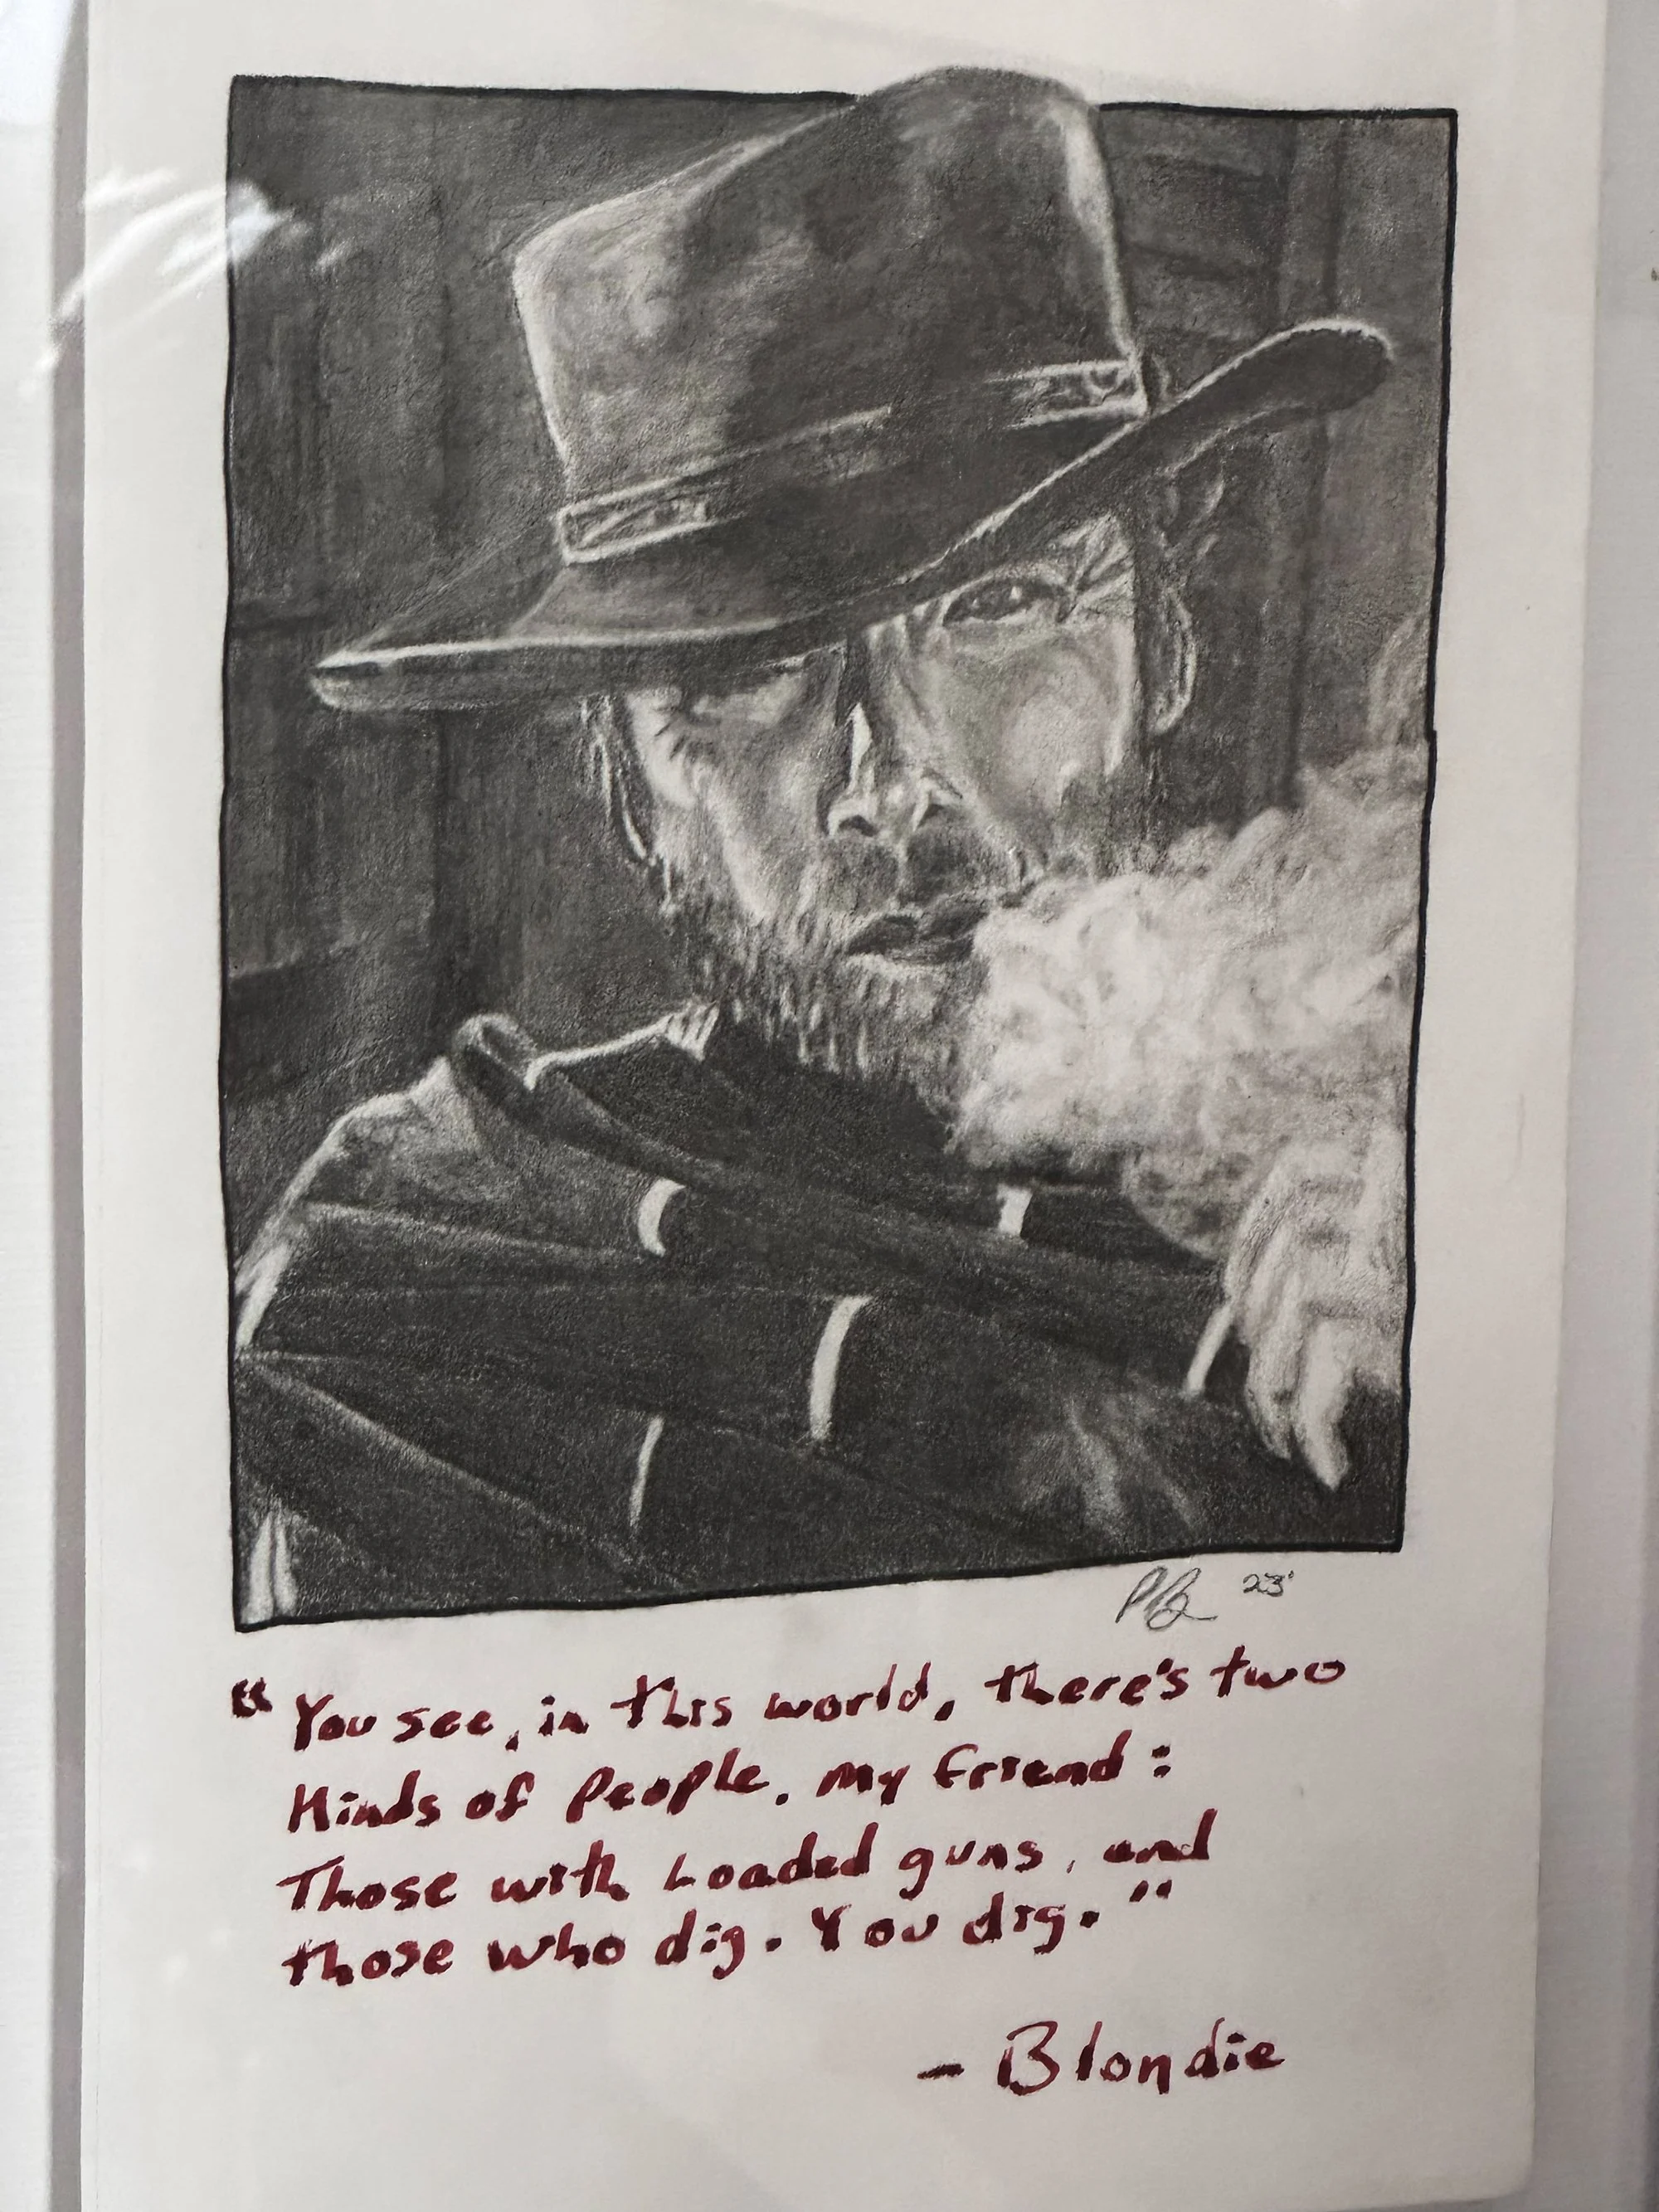 23'
"You see, in this world, there's two
Kinds of People, my friend:
Those with Loaded guns, and
those who dig. You dig."
- Blondie